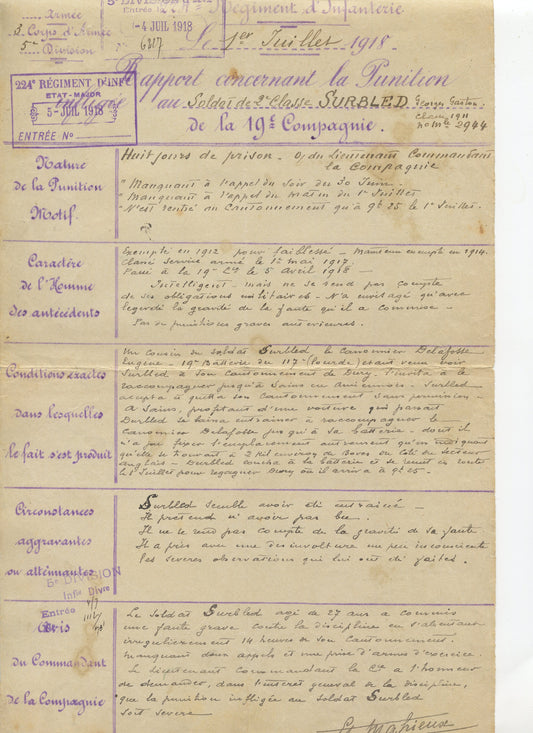 Armée
3 Corps d'Armée
5e Division
Entrée le
-4 JUIL 1918
6217
Régiment d'Infanterie
Le 1er Juillet 1918
224e RÉGIMENT D'INFIE
ETAT-MAJOR
5-JUIL 1918
ENTRÉE No
Rapport concernant la Punition
infligée au Soldat de 2e Classe SURBLED Georges Gaston
Classe 1911
No Mle 2944
de la 19e Compagnie.
Nature
de la Punition
Motif.
Huit jours de prison. O/ du Lieutenant Commandant
la Compagnie
"Manquant à l'appel du soir du 30 Juin
"Manquant à l'appel du matin du 1er Juillet
"N'est rentré au Cantonnement qu'à 9h 25 le 1er Juillet.
Caractère
de l'Homme
Ses antécédents
Exempté en 1912 pour faiblesse - Maintenu exempté en 1914.
Classé service armé le 1er mai 1917.
Passé à la 19e Cie le 5 Avril 1918 -
Intelligent - mais ne se rend pas compte
de ses obligations militaires - N'a envisagé qu'avec
légèreté la gravité de la faute qu'il a commise -
Pas de punitions graves antérieures.
Conditions exactes
dans lesquelles
le fait s'est produit
Un cousin du soldat Surbled le canonnier Delafosse
Eugène - 19e Batterie du 117e (lourde) étant venu voir
Surbled à son Cantonnement de Dury. l'invita à le
raccompagner jusqu'à Sains en Amiennois - Surbled
accepta & quitta son Cantonnement sans permission -
A Sains, profitant d'une voiture qui passait
Surbled se laissa entraîner à raccompagner le
Canonnier Delafosse jusqu'à sa batterie - dont il
n'a pu fixer l'emplacement autrement qu'en indiquant
qu'elle se trouvait à 2 Kil environ de Boves du côté du secteur
anglais - Surbled coucha à la batterie et se remit en route
le 1er Juillet pour regagner Dury où il arriva à 9h 25.
Circonstances
aggravantes
ou atténuantes
Surbled semble avoir été entraîné -
Il prétend n'avoir pas bu.
Il ne se rend pas compte de la gravité de sa faute
Il a pris avec une désinvolture un peu inconsciente
les sévères observations qui lui ont été faites.
5e DIVISION
Infie Divre
Entrée
Avis
du Commandant
de la Compagnie
Le Soldat Surbled agé de 27 ans a commis
une faute grave contre la discipline en s'absentant
irrégulièrement 14 heures de son Cantonnement.
manquant deux appels et une prise d'armes d'exercice.
Le Lieutenant Commandant la Cie a l'honneur
de demander, dans l'intérêt général de la discipline,
que la punition infligée au soldat Surbled
soit sévère